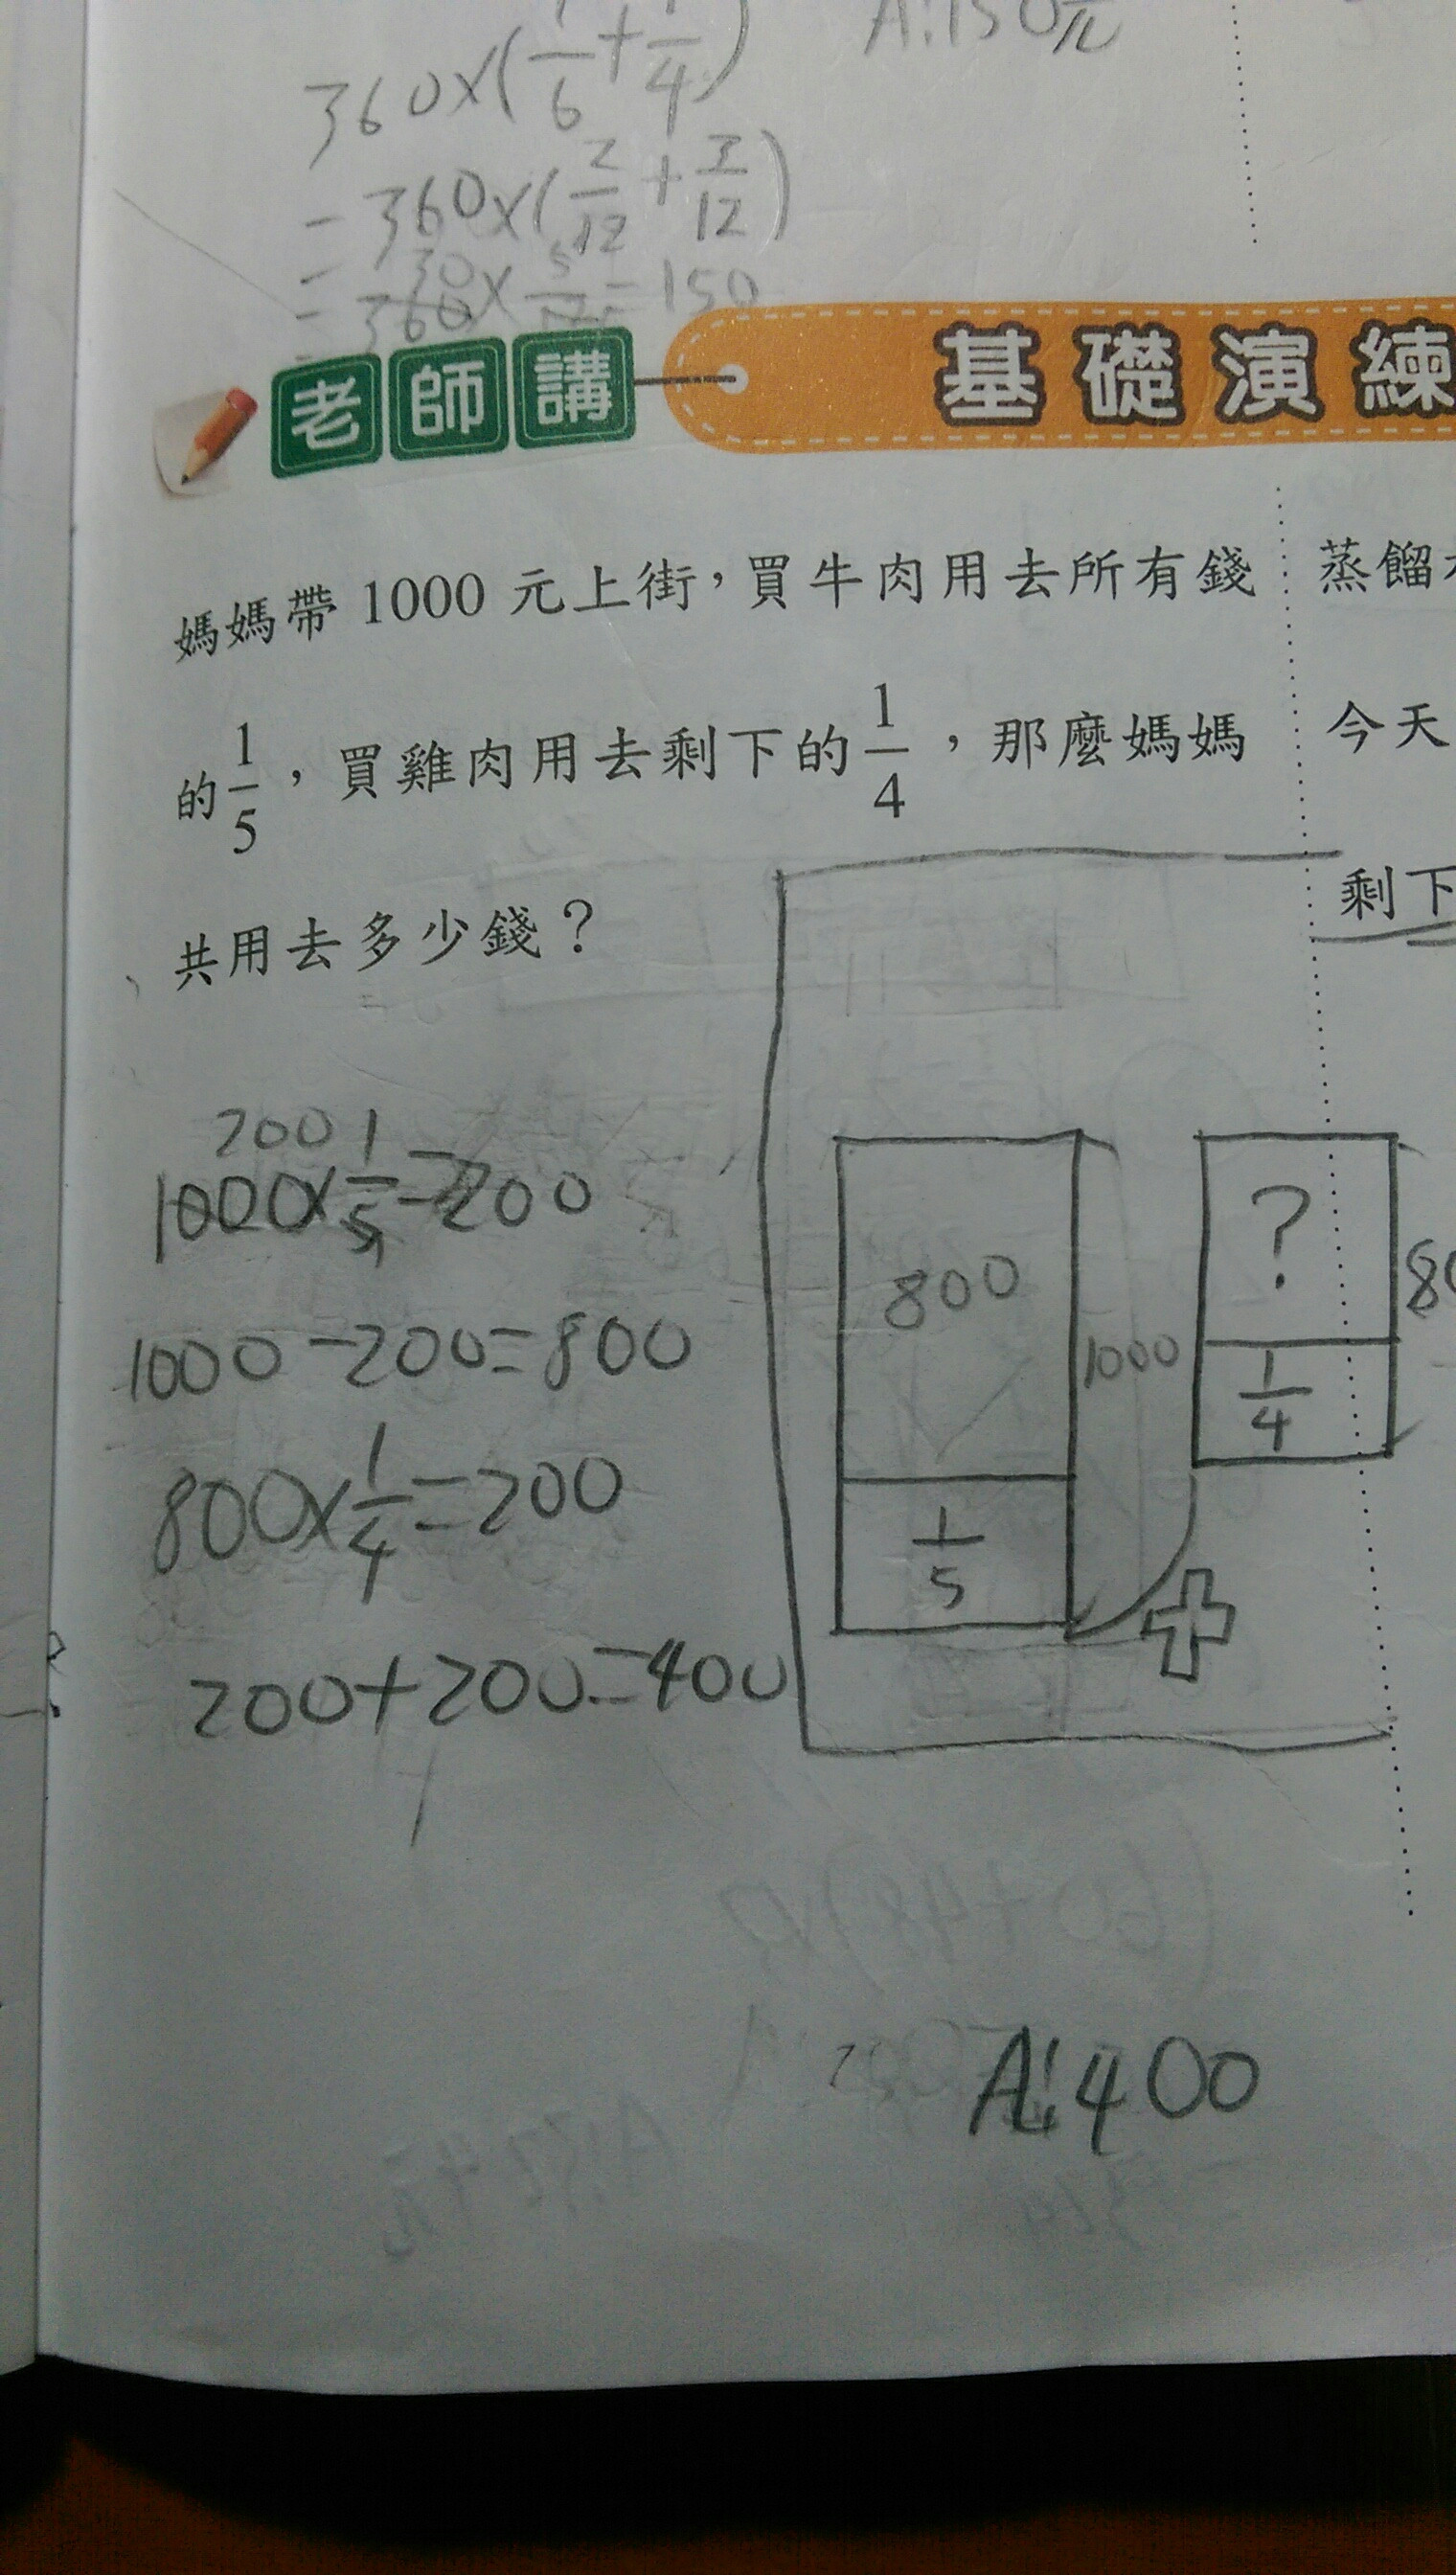 360×(1/6+1/4) A:150元
=360×(2/12+3/12)
30 5
=360×
=150
老師講 基礎演練
媽媽帶 1000 元上街，買牛肉用去所有錢
的1/5，買雞肉用去剩下的1/4，那麼媽媽
共用去多少錢？
蒸餾
今天
剩下
200 1
1000×1/5=200
1000-200=800
800×1/4=200
200+200=400
800
1/5
1000
?
1/4
A:400